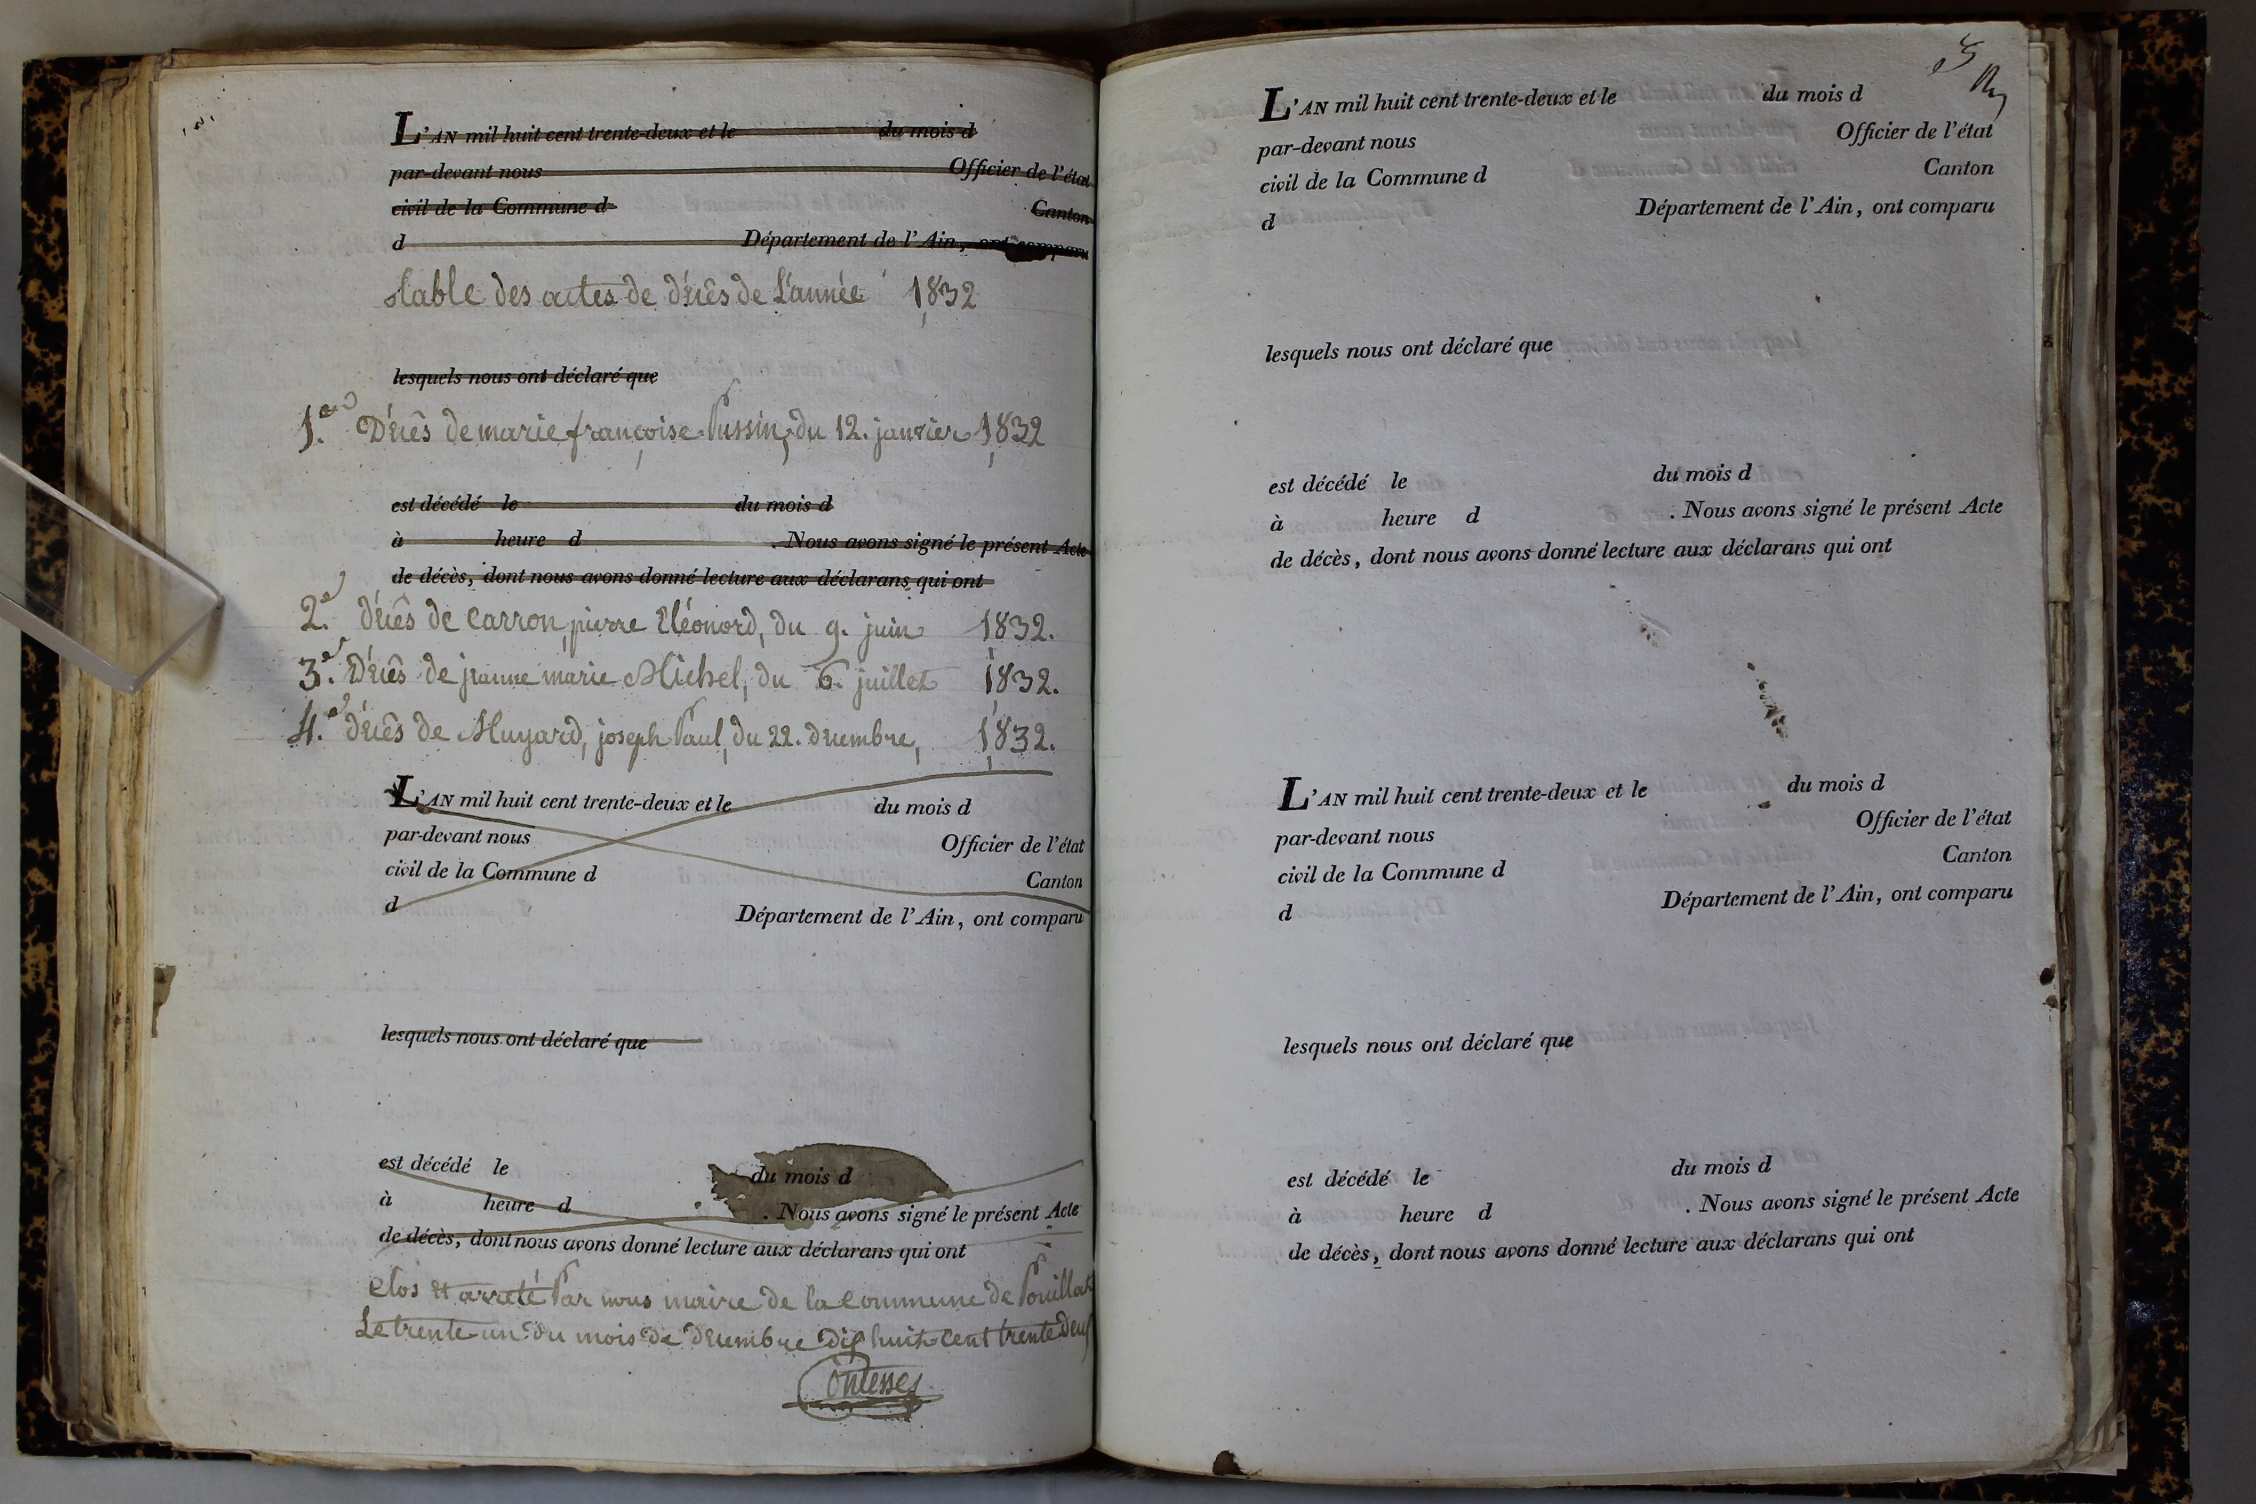 L'AN mil huit cent trente-deux et le du mois d
par-devant nous Officier de l'état
civil de la Commune d Canton
d Département de l'Ain, ont comparu
table des actes de décès de L'année 1832
lesquels nous ont déclaré que
1.er Décès de marie françoise Pussin, du 12. janvier 1832
est décédé le du mois d
à heure d . Nous avons signé le présent Acte
de décès, dont nous avons donné lecture aux déclarans qui ont
2.e décès de Carron, pierre Eléonord, du 9. juin 1832.
3.e Décès de jeanne marie Michel, du 6. juillet 1832.
4.e décès de Muyard, joseph Paul, du 22. décembre, 1832.
L'AN mil huit cent trente-deux et le du mois d
par-devant nous Officier de l'état
civil de la Commune d Canton
d Département de l'Ain, ont comparu
lesquels nous ont déclaré que
est décédé le du mois d
à heure d . Nous avons signé le présent Acte
de décès, dont nous avons donné lecture aux déclarans qui ont
clos et arreté Par nous maire de la Commune de Pouillat
Le trente-un du mois de décembre dix huit cent trente deux
L'AN mil huit cent trente-deux et le du mois d
par-devant nous Officier de l'état
civil de la Commune d Canton
d Département de l'Ain, ont comparu
lesquels nous ont déclaré que
est décédé le du mois d
à heure d . Nous avons signé le présent Acte
de décès, dont nous avons donné lecture aux déclarans qui ont
L'AN mil huit cent trente-deux et le du mois d
par-devant nous Officier de l'état
civil de la Commune d Canton
d Département de l'Ain, ont comparu
lesquels nous ont déclaré que
est décédé le du mois d
à heure d . Nous avons signé le présent Acte
de décès, dont nous avons donné lecture aux déclarans qui ont